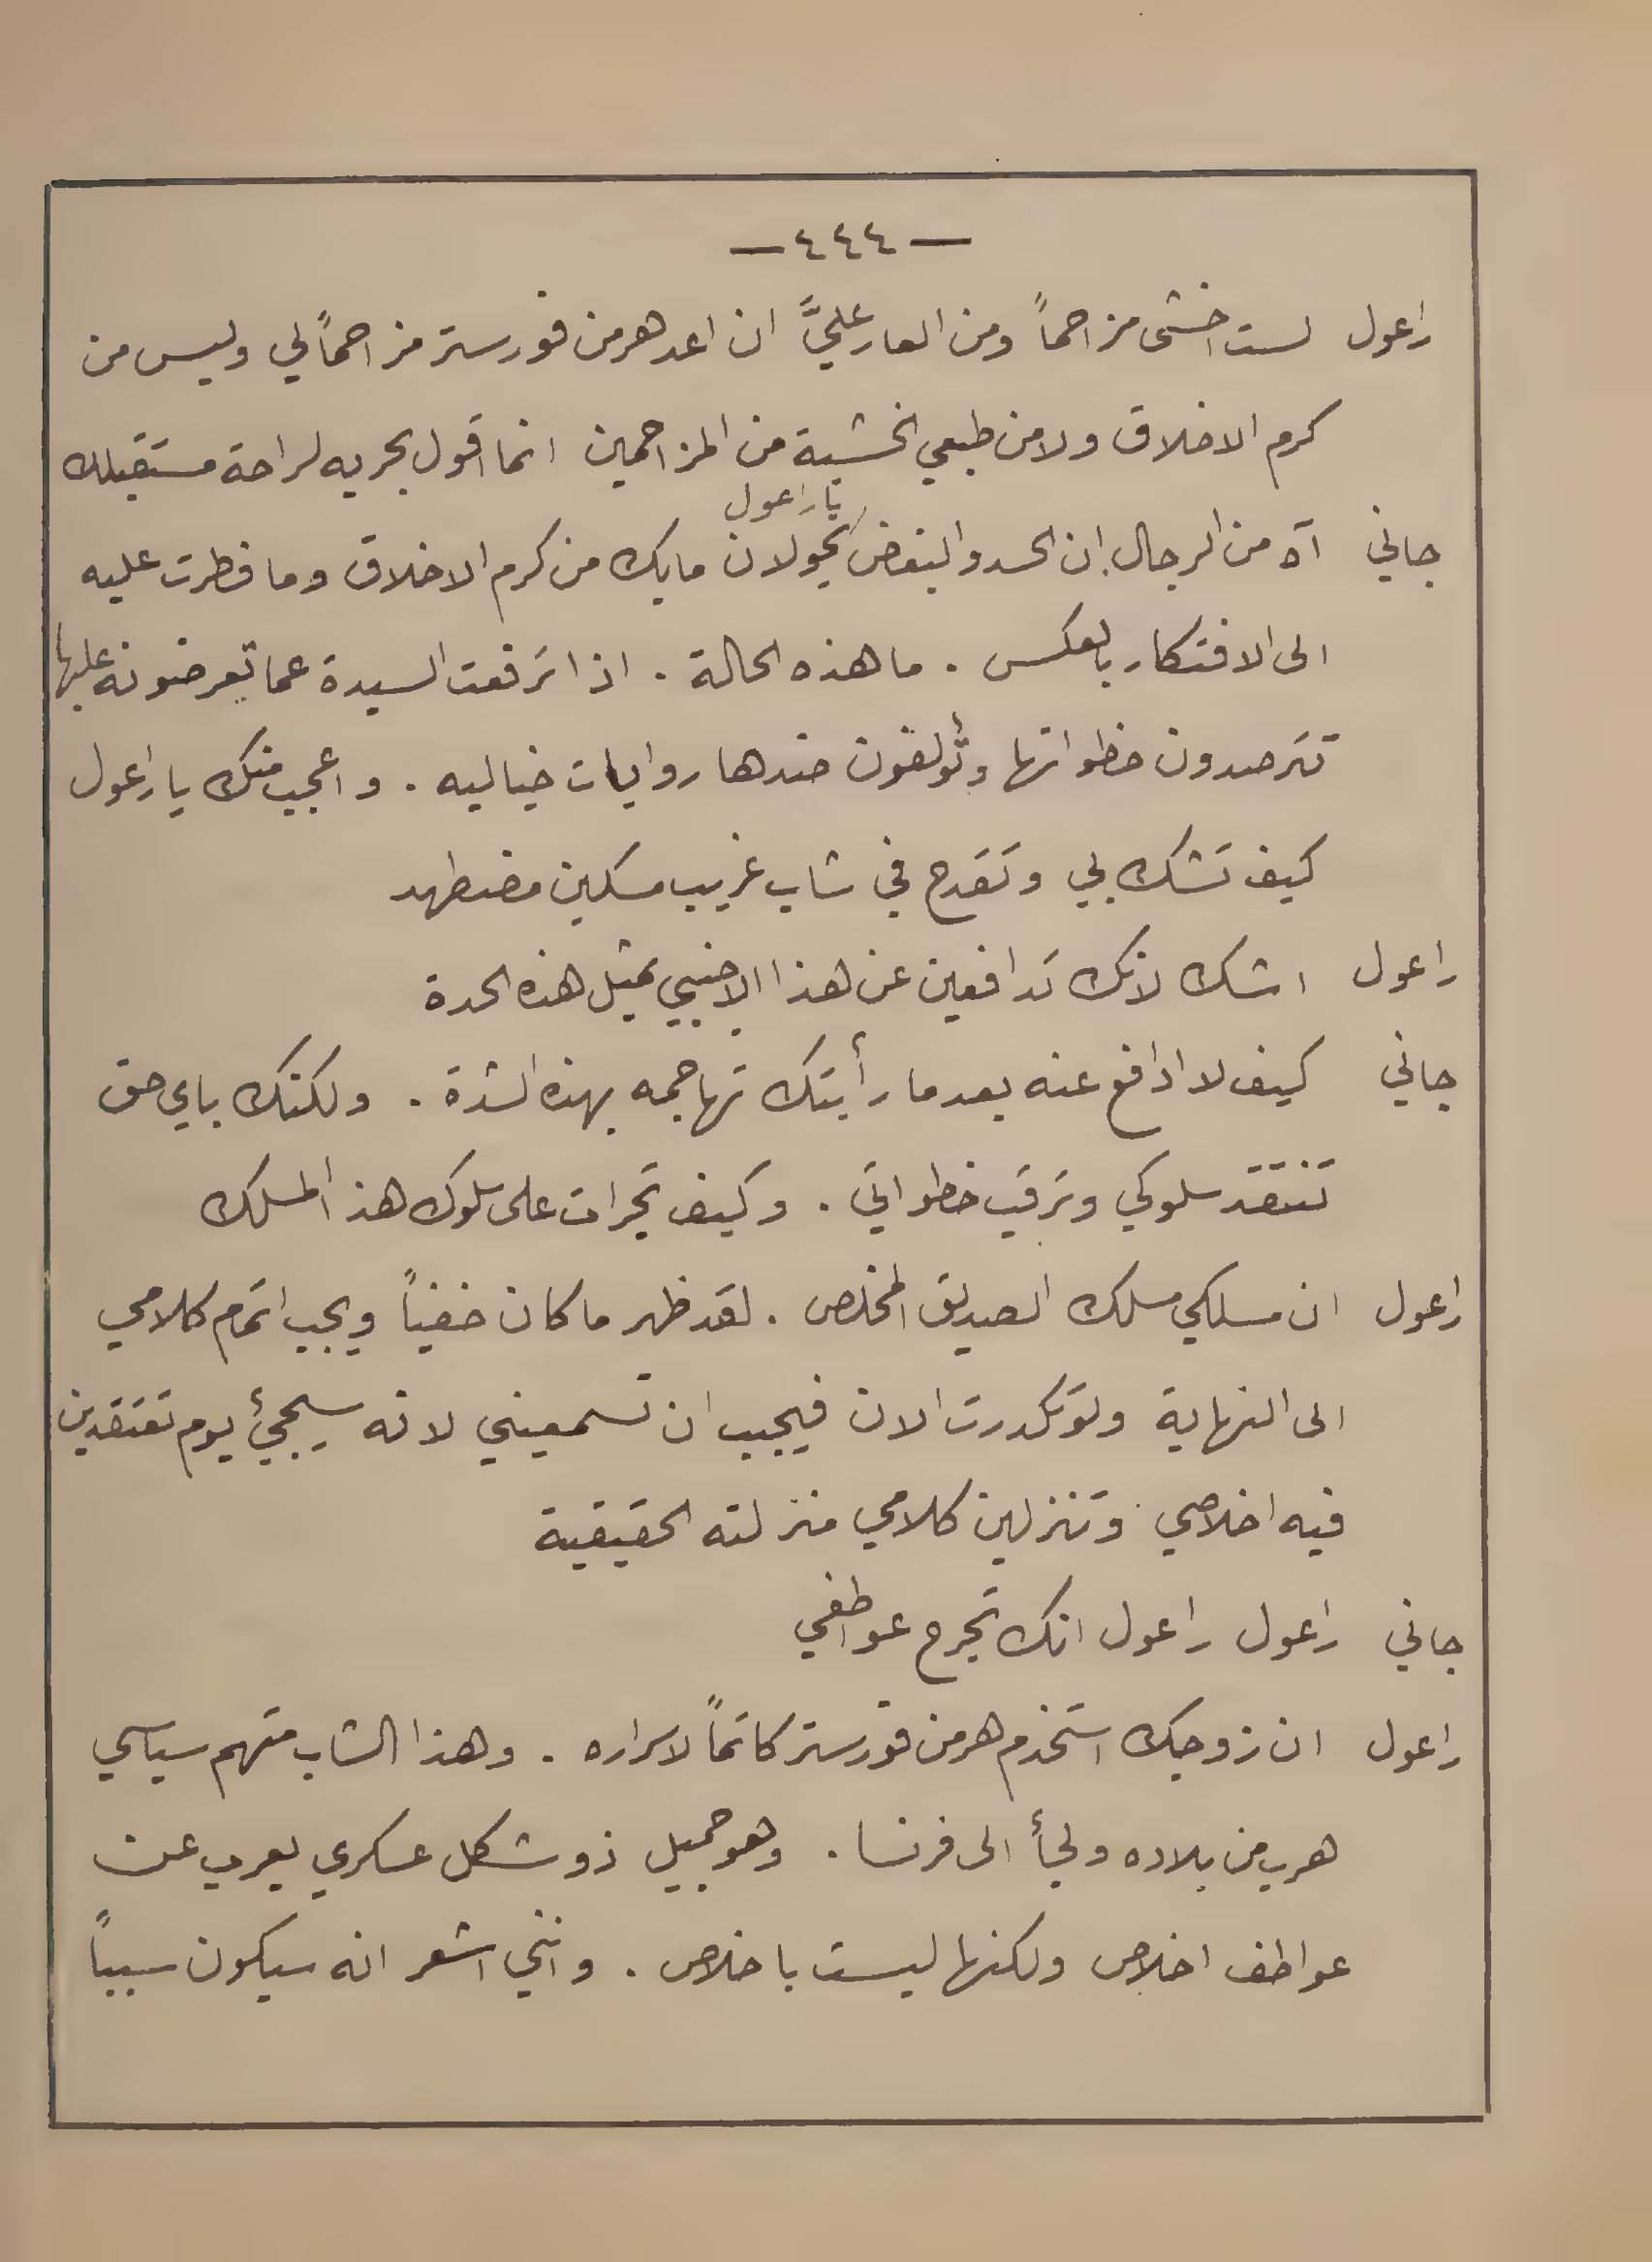 — ٤٤٤ —
راعول لست اخشى مزاحماً ومن العار عليَّ ان اعد هرمن فورستر مزاحماً لي وليس من
كرم الاخلاق ولا من طبعي الخشية من المزاحمين انما اقول بحريه لراحة مستقبلك
يا راعول
جاني آه من الرجال ان الحسد والبغض يحولان ما بك من كرم الاخلاق وما فطرت عليه
الى الافتكار بالعكس . ما هذه الحالة . اذا ترفعت السيدة عما تعرضونه عليها
تترصدون خطواتها وتؤلفون ضدها روايات خياليه . واعجب منك يا راعول
كيف تشك بي وتقدح في شاب غريب مسكين مضطهد
راعول اشك لانك تدافعين عن هذا الاجنبي بمثل هذه الحدة
جاني كيف لا ادافع عنه بعد ما رأيتك تهاجمه بهذه الشدة . ولكنك باي حق
تنتقد سلوكي وترقب خطواتي . وكيف تجرات على سلوك هذا المسلك
راعول ان مسلكي مسلك الصديق المخلص . لقد ظهر ما كان خفياً ويجب اتمام كلامي
الى النهاية ولو تكدرت الان فيجب ان تسمعيني لانه سيجيئ يوم تعتقدين
فيه اخلاصي وتنزلين كلامي منزلته الحقيقية
جاني راعول راعول انك تجرح عواطفي
راعول ان زوجك استخدم هرمن فورستر كاتماً لاسراره . وهذا الشاب متهم سياسي
هرب من بلاده ولجأ الى فرنسا . وهو جميل ذو شكل عسكري يعرب عن
عواطف اخلاص ولكنها ليست باخلاص . وانني اشعر انه سيكون سبباً